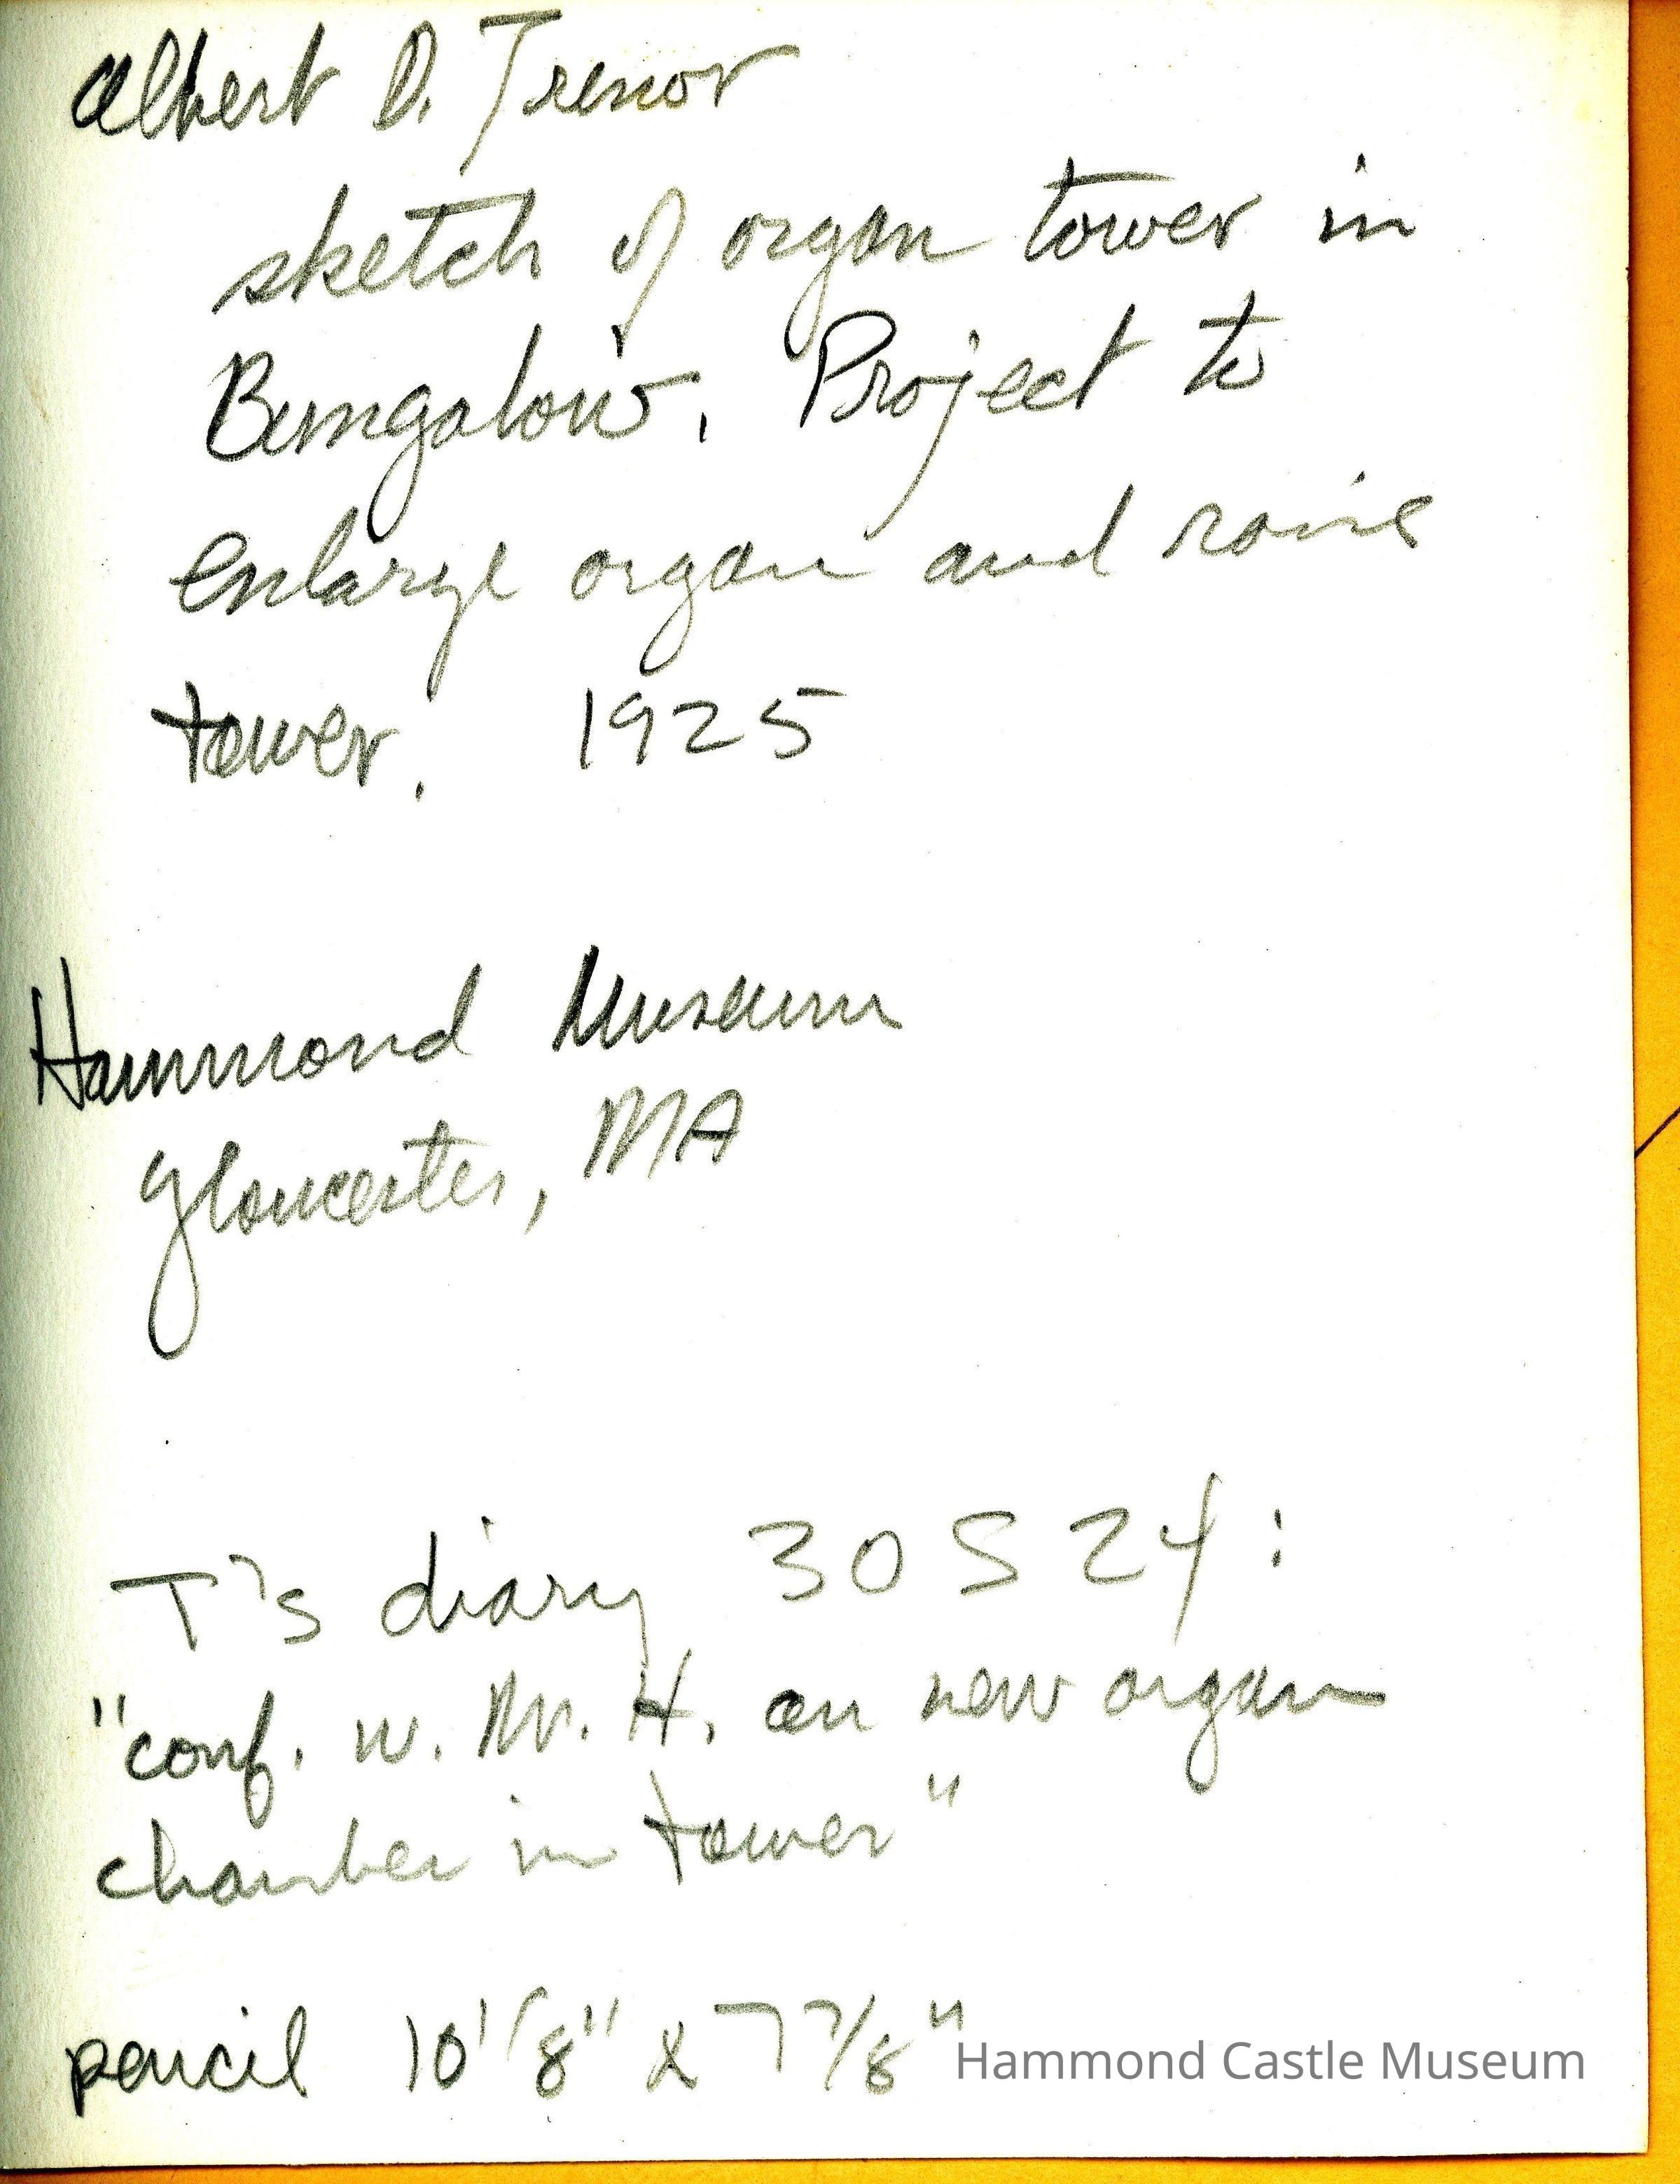 Albert D. Trenor
sketch of organ tower in
Bungalow. Project to
enlarge organ and raise
tower. 1925
Hammond Museum
Gloucester, MA
T's diary 30 S 24:
"conf. w. Mr. H. on new organ
chamber in tower"
pencil 10 1/8" x 7 7/8"
Hammond Castle Museum